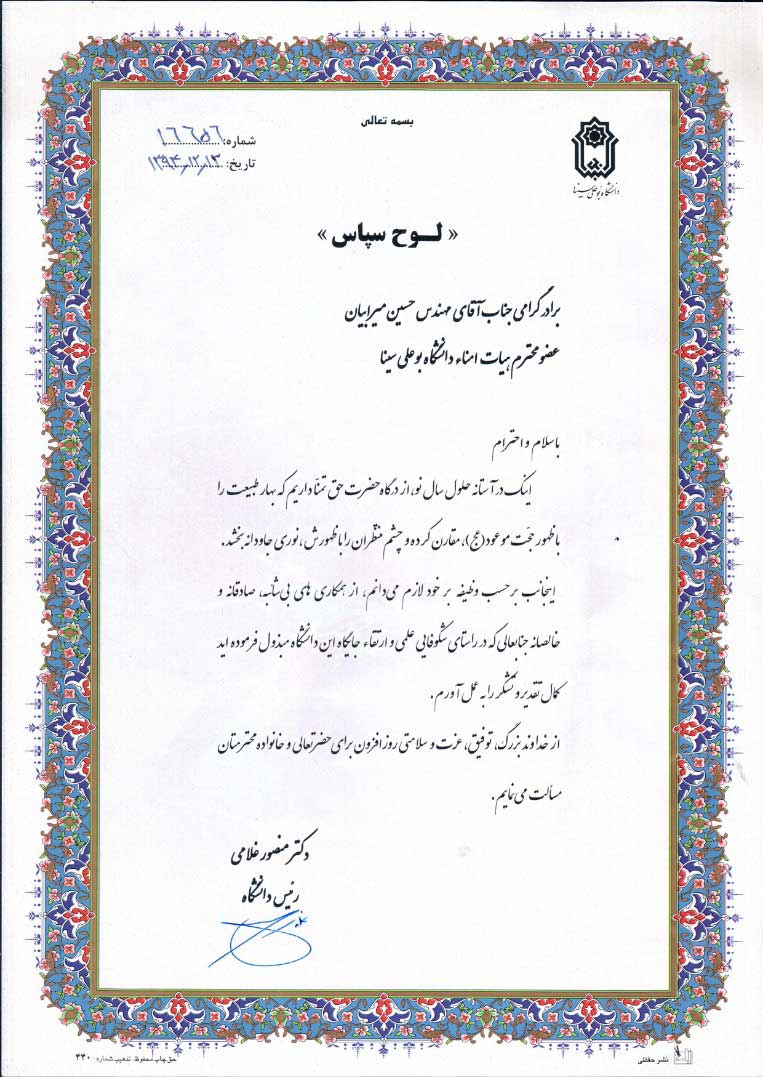 بسمه تعالی
شماره: ۱۶۶۵۶
تاریخ: ۱۳۹۴،۱۲،۱۳
دانشگاه بوعلی سینا
« لـــوح سپاس »
برادر گرامی جناب آقای مهندس حسین میرابیان
عضو محترم هیات امناء دانشگاه بوعلی سینا
با سلام و احترام
اینک در آستانه حلول سال نو، از درگاه حضرت حق تمنّا داریم که بهار طبیعت را
با ظهور حجّت موعود (عج)، مقارن کرده و چشم منتظران را با ظهورش، نوری جاودانه بخشد.
اینجانب بر حسب وظیفه بر خود لازم می‌دانم، از همکاری های بی‌شائبه، صادقانه و
خالصانه جنابعالی که در راستای شکوفایی علمی و ارتقاء جایگاه این دانشگاه مبذول فرموده اید
کمال تقدیر و تشکر را به عمل آورم.
از خداوند بزرگ، توفیق، عزت و سلامتی روز افزون برای حضرتعالی و خانواده محترمتان
مسالت می نمایم.
دکتر منصور غلامی
رئیس دانشگاه
نشر حفظی
حق چاپ محفوظ. تذهیب شماره: ۳۳۰